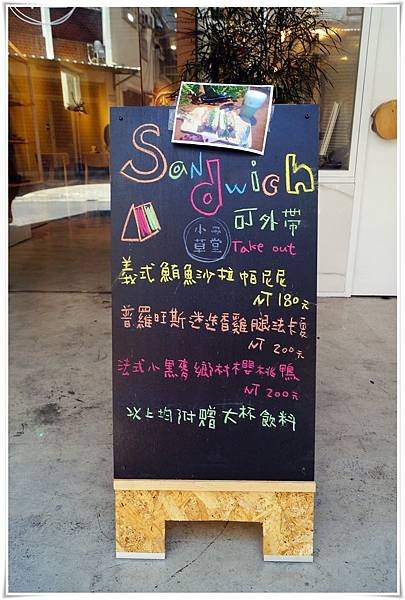 Sandwich
可外帶
小云
草堂
Take out
義式鮪魚沙拉帕尼尼
NT 180元
普羅旺斯迷迭香雞腿法卡夏
NT 200元
法式小黑麥鄉村櫻桃鴨
NT 200元
以上均附贈大杯飲料